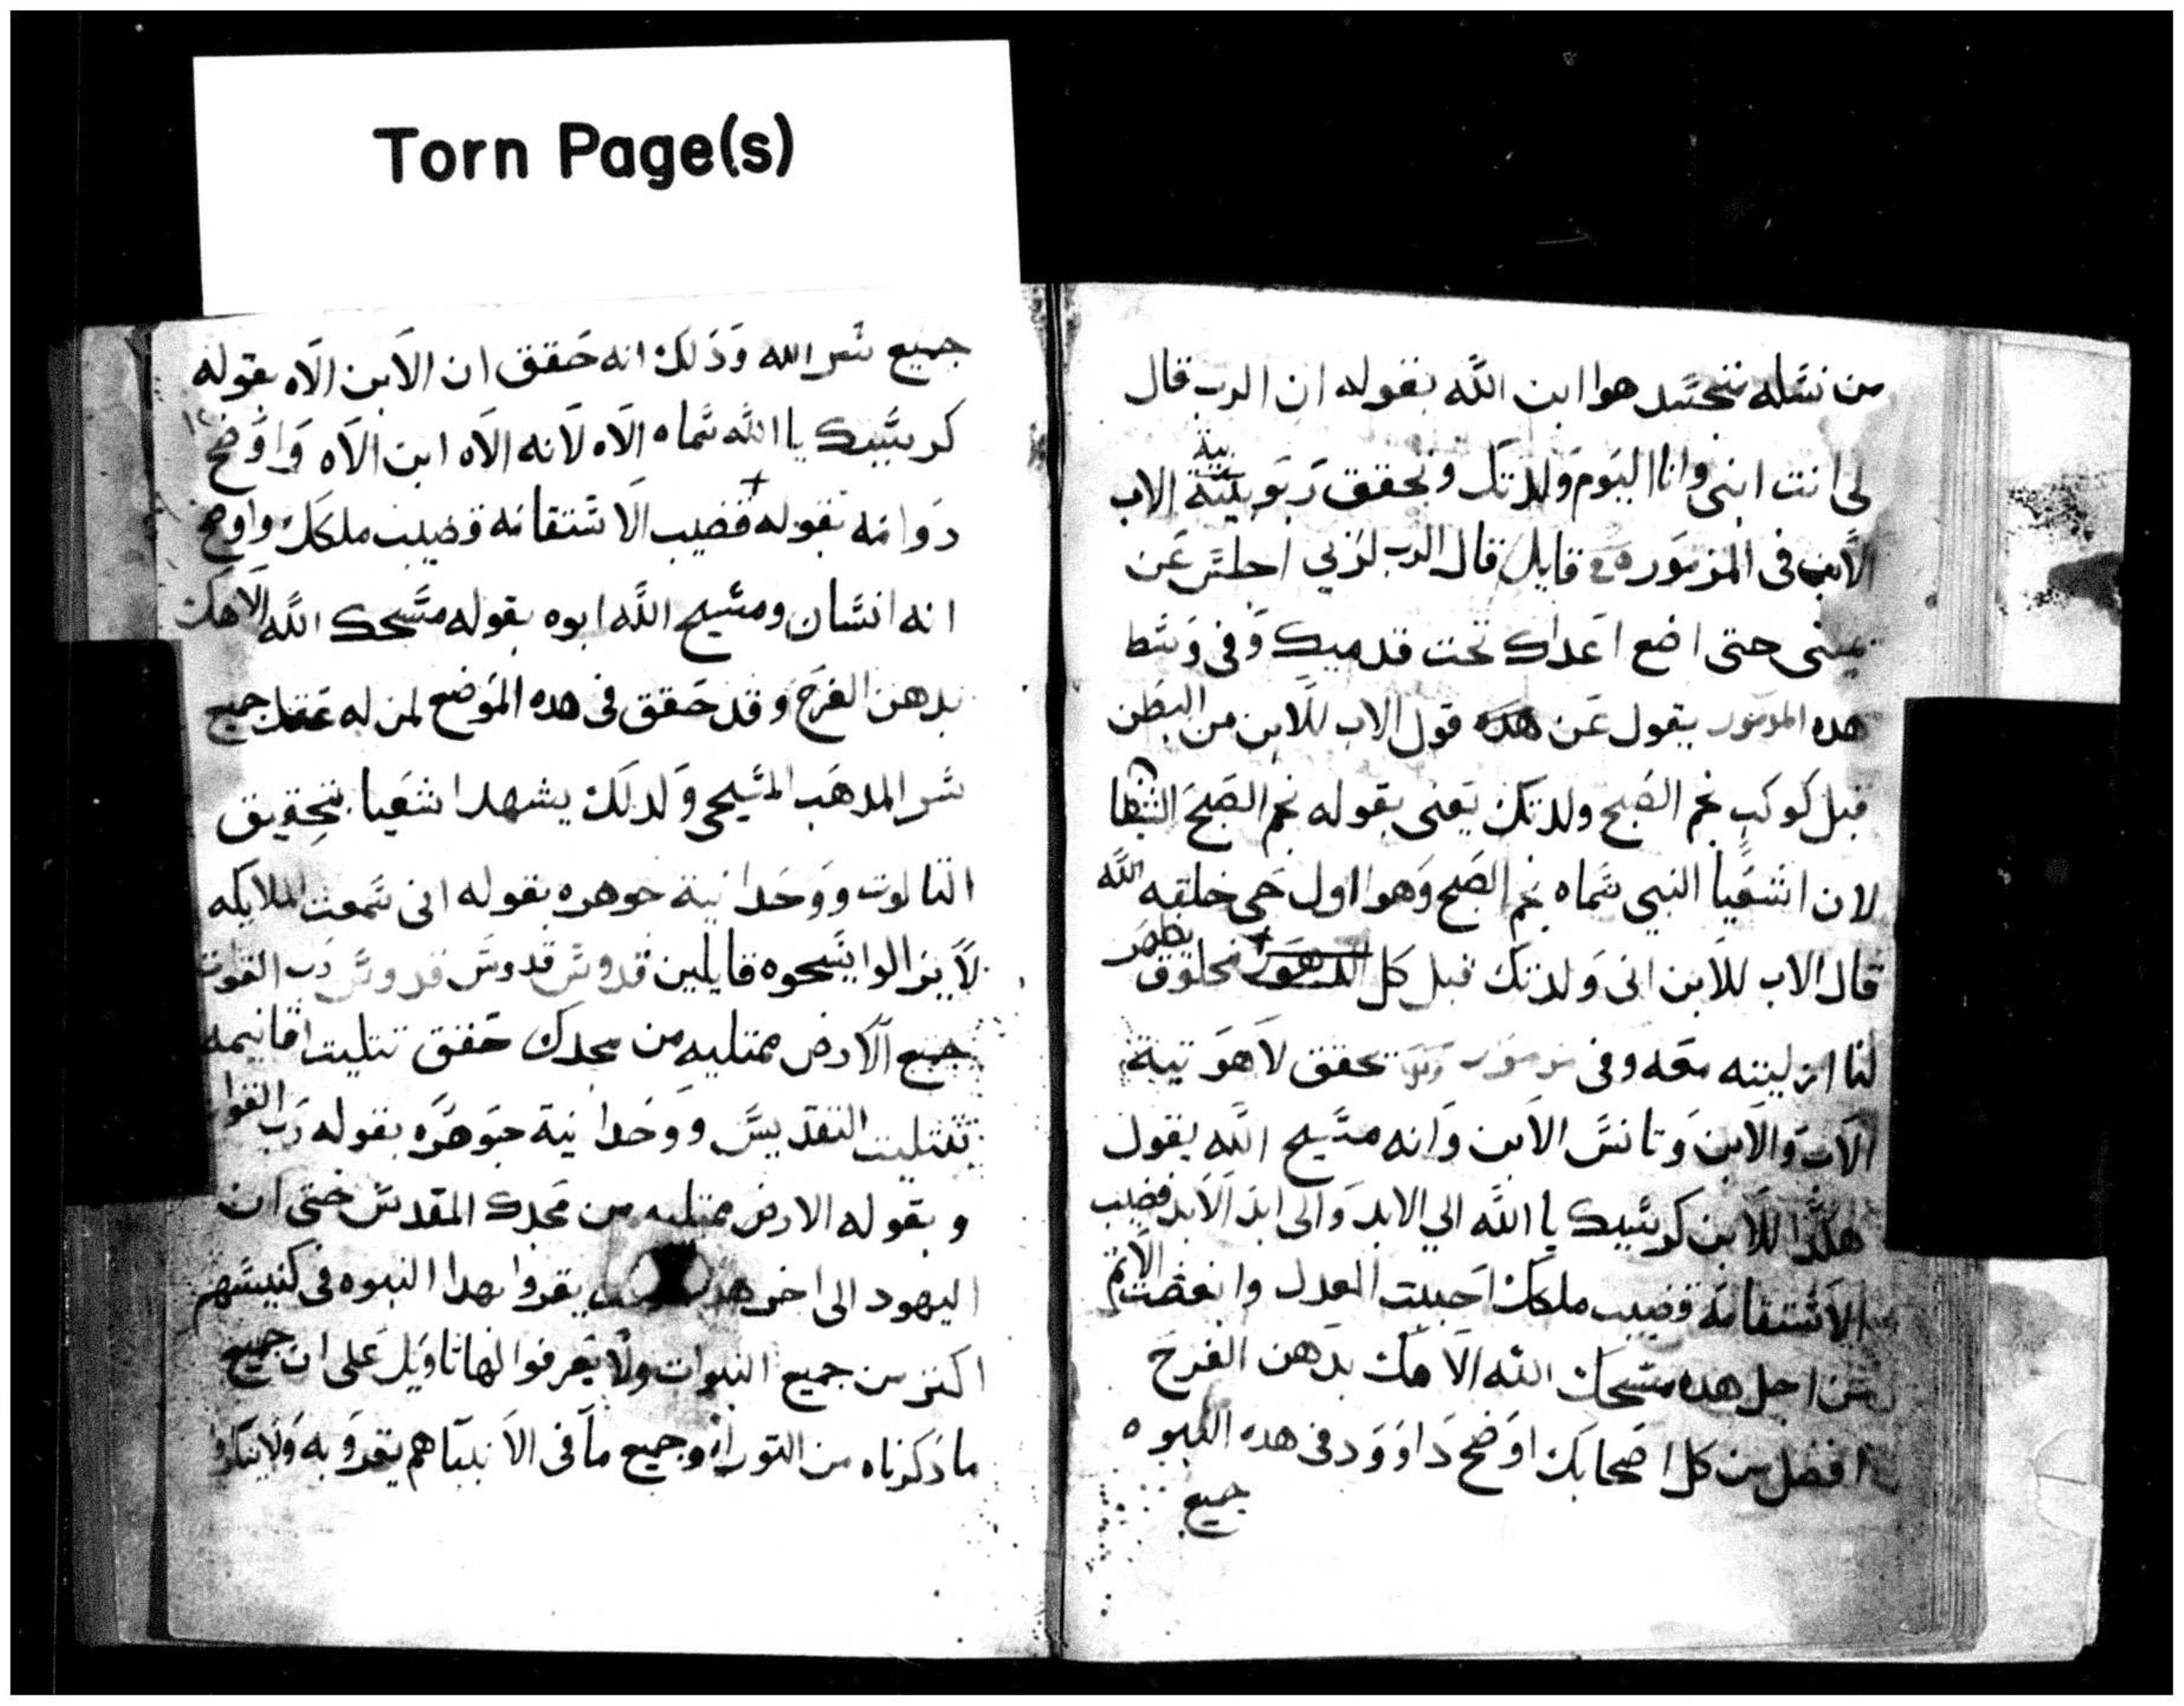 Torn Page(s)
من نسله تتجسد هوا ابن الله بقوله ان الرب قال
لى انت ابنى وانا اليوم ولدتك وتحقق ربوبية الاب
الابن فى المزمور قايل قال الرب لربي اجلس عن
يمينى حتى اضع اعداك تحت قدميك وفى وسط
هده المزمور يقول عن هده قول الاب للابن من البطن
قبل كوكب نجم الصبح ولدتك يعنى بقوله نجم الصبح
لان اشعيا النبي سماه نجم الصبح وهوا اول حى خلقه الله
قال الاب للابن انى ولدتك قبل كل مخلوق يظهر
لنا ازليته معه وفى مزمور تحقق لاهوتية
الاب والابن وتانس الابن وانه مسيح الله يقول
هكذا للابن كرسيك يا الله الي الابد والى ابد الابد قضيب
الاستقامة قضيب ملكك احببت العدل وابغضت الاثم
من اجل هده مسحك الله الاهك بدهن الفرح
افضل من كل اصحابك اوضح داوود فى هده النبوه
جميع
جميع سر الله وذلك انه حقق ان الابن الاه بقوله
كرسيك يا الله سماه الاه لانه الاه ابن الاه واوضح
دوامه بقوله قضيب الاستقامه قضيب ملكك واوضح
انه انسان ومسيح الله ابوه بقوله مسحك الله الاهك
بدهن الفرح وقد حقق فى هده الموضع لمن له عقل جميع
سر المدهب المسيحى ولدلك يشهد اشعيا بتحقيق
التالوت ووحدانية جوهره بقوله انى سمعت الملايكه
لايزالوا يسبحوه قايلين قدوس قدوس قدوس رب القوات
جميع الارض ممتليه من مجدك حقق تتليت اقانيمه
بتتليت التقديس ووحدانية جوهره بقوله رب القوات
وبقوله الارض ممتليه من مجدك المقدس حتى ان
اليهود الى اخر يقروا بهدا النبوه فى كنيستهم
اكتر من جميع النبوات ولا يعرفوا لها تاويل على ان جميع
ما ذكرناه من التوراه وجميع ما فى الانبيا هم يقروا به